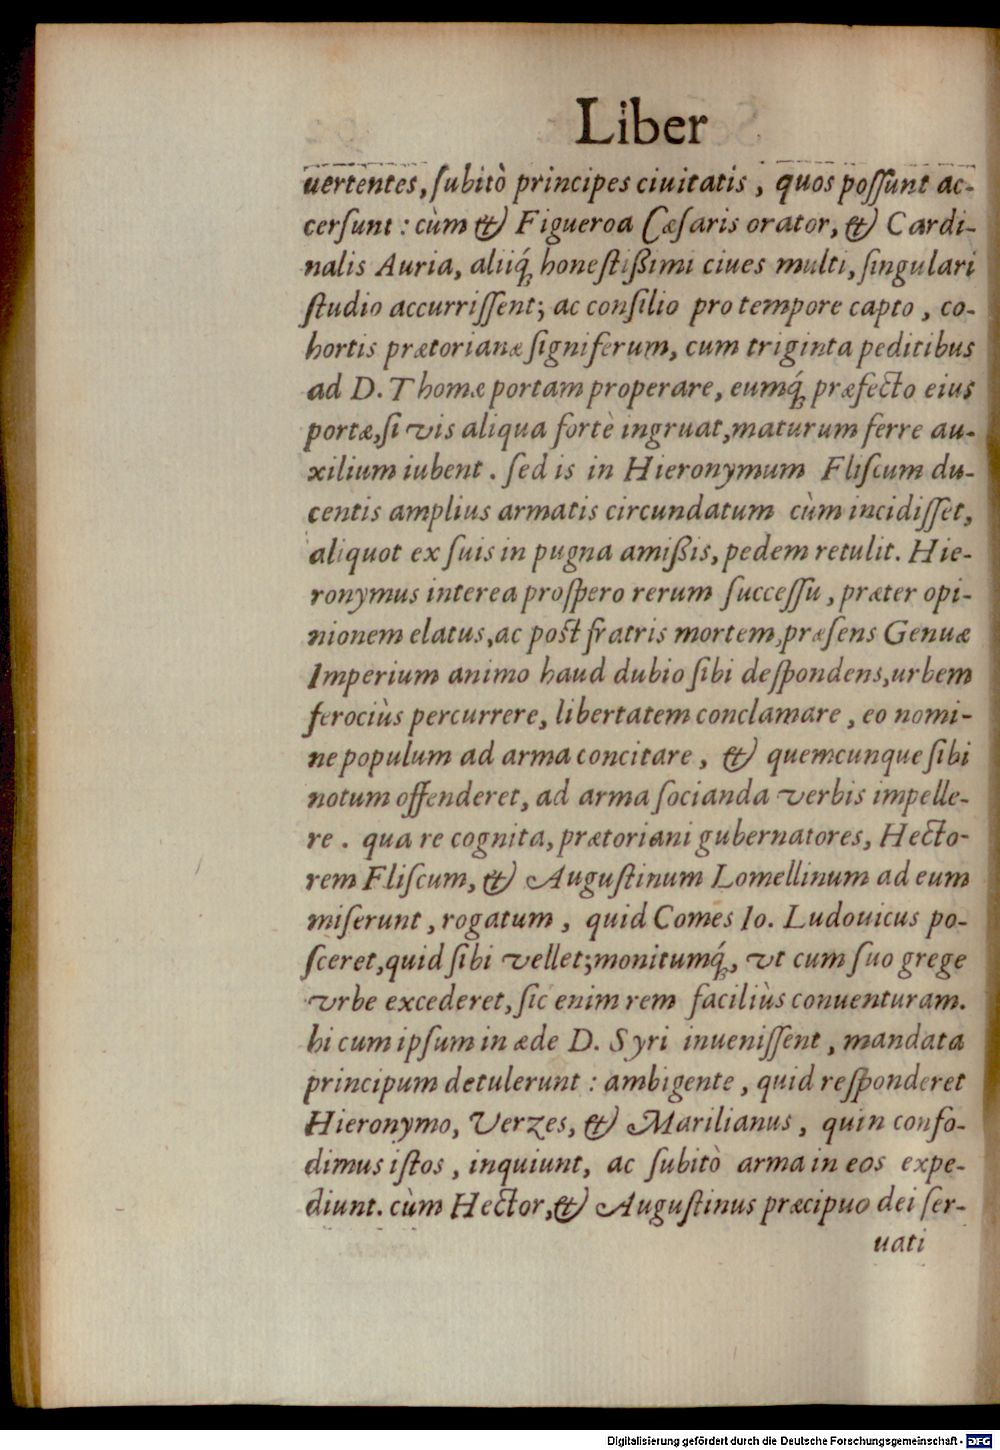 Liber
uertentes, ſubitò principes ciuitatis, quos poſſunt ac-
cerſunt: cùm & Figueroa Cæſaris orator, & Cardi-
nalis Auria, aliiq́ꝫ honeſtißimi ciues multi, ſingulari
ſtudio accurriſſent; ac conſilio pro tempore capto, co-
hortis prætorianæ ſigniferum, cum triginta peditibus
ad D. Thomæ portam properare, eumq́ꝫ præfecto eius
portæ, ſi vis aliqua fortè ingruat, maturum ferre au-
xilium iubent. ſed is in Hieronymum Fliſcum du-
centis amplius armatis circundatum cùm incidiſſet,
aliquot ex ſuis in pugna amißis, pedem retulit. Hie-
ronymus interea proſpero rerum ſucceſſu, præter opi-
nionem elatus, ac poſt fratris mortem, præſens Genuæ
Imperium animo haud dubio ſibi deſpondens, urbem
ferociùs percurrere, libertatem conclamare, eo nomi-
ne populum ad arma concitare, & quemcunque ſibi
notum offenderet, ad arma ſocianda verbis impelle-
re. qua re cognita, prætoriani gubernatores, Hecto-
rem Fliſcum, & Auguſtinum Lomellinum ad eum
miſerunt, rogatum, quid Comes Io. Ludouicus po-
ſceret, quid ſibi vellet; monitumq́ꝫ, vt cum ſuo grege
vrbe excederet, ſic enim rem faciliùs conuenturam.
hi cum ipſum in æde D. Syri inueniſſent, mandata
principum detulerunt: ambigente, quid reſponderet
Hieronymo, Verzes, & Marilianus, quin confo-
dimus iſtos, inquiunt, ac ſubitò arma in eos expe-
diunt. cùm Hector, & Auguſtinus præcipuo dei ſer-
uati
Digitalisierung gefördert durch die Deutsche Forschungsgemeinschaft - DFG